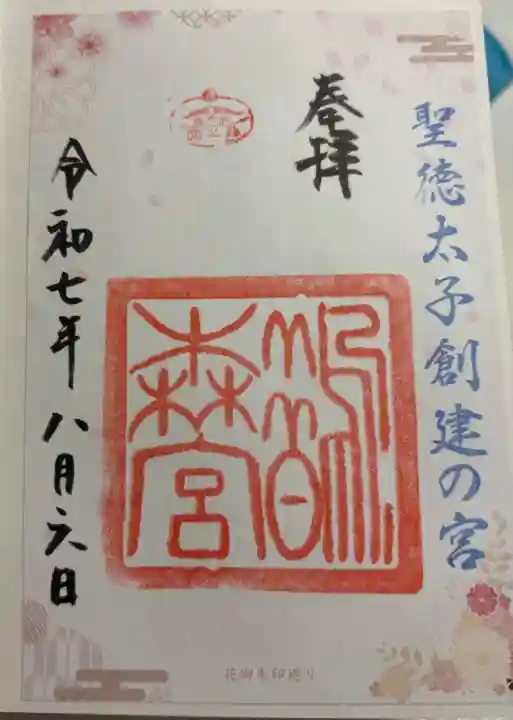 聖徳太子創建の宮
奉拝
鵲森宮
令和七年八月六日
花御朱印巡り